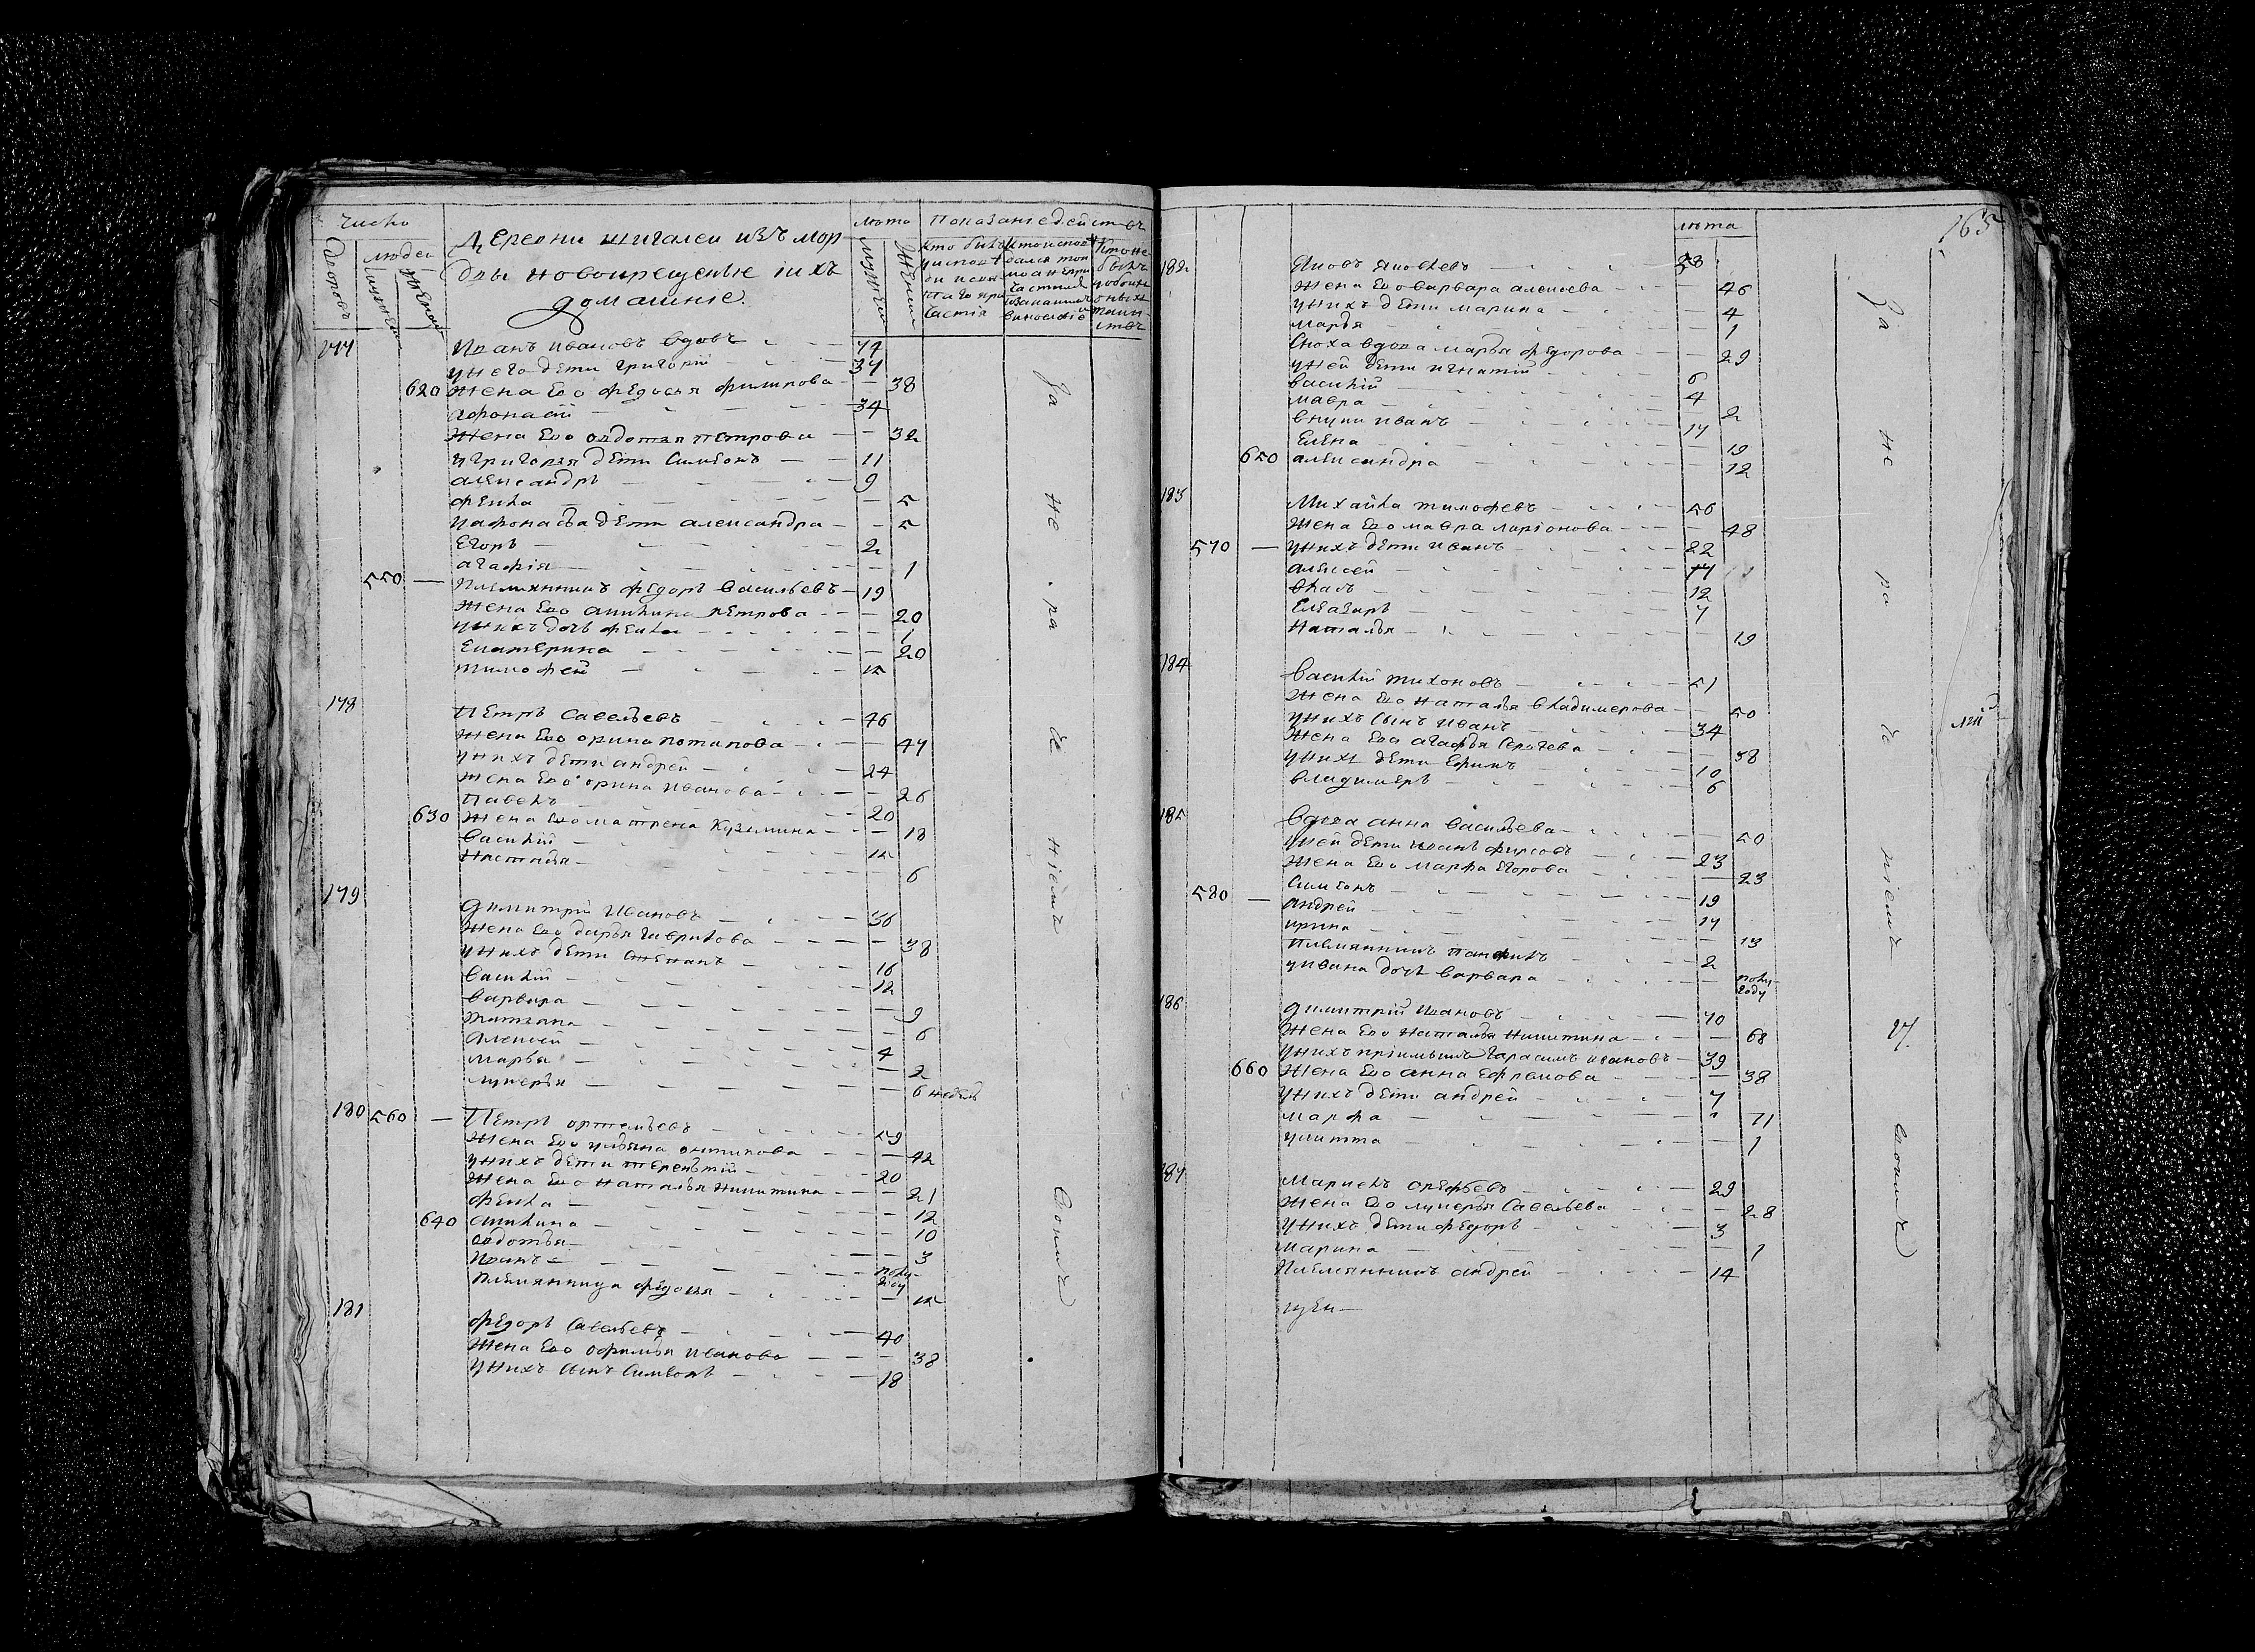 число
лѣта
показание действъ
дворовъ
людей
мужеска
женска
Деревни шигалеи изъ мор
двы новокрещеные iихъ
домашние
мужеска
женска
177 Иванъ Ивановъ вдовъ 77
у него дети григорiй 37
620 жена ево федосья филипова 38
афонасей 34
жена ево овдотья петрова 32
у григорья дети симеонъ 11
александръ 9
фекла 5
у афонасья дети александра 5
Егоръ 2
агафiя 1
550 — племянникъ федоръ васильевъ 19
жена ево акилина петрова 20
у нихъ дочь фекла 1
Екатерина 20
тимофей 15
178 Петръ савельевъ 46
жена ево орина потапова 47
у нихъ дети андрей 24
жена ево орина иванова 26
павелъ 20
630 жена ево матрена кузьмина 18
василiй 15
настасья 6
179 димитрiй Ивановъ 36
жена ево дарья гаврилова 38
у нихъ дети степанъ 16
василiй 12
варвара 9
татьяна 6
алексей 4
марья 2
лукерья 6 недель
180 560 — Петръ ортемьевъ 59
жена ево ульяна онтипова 42
у нихъ дети терентiй 20
жена ево наталья никитина 21
фекла 12
640 акилина 10
овдотья 3
Иванъ полу-
году
племянница федосья 15
181 федоръ савельевъ 40
жена ево офимья иванова 38
у нихъ сынъ симеонъ 18
За не ра че нiемъ своимъ
165
лѣта
182 Яковъ яковлевъ 58
жена ево варвара алексеева 46
у нихъ дети марина 4
марья 1
сноха вдова марья федорова 29
у ней дети игнатiй 6
василiй 4
мавра 2
внуки иванъ 17
Елена 19
650 александра 12
183 Михайла тимофевъ 56
жена ево мавра ларiонова 48
570 — у нихъ дети иванъ 22
алексей 17
власъ 12
Елеазаръ 7
наталья 19
184 василiй тихоновъ 51
жена ево наталья владимерова 50
у нихъ сынъ иванъ 34
жена ева агафья сергеева 38
у нихъ дети Ефимъ 10
владимеръ 6
185 вдова анна васильева 50
у ней дети иванъ фирсовъ 23
жена ево марфа Егорова 23
580 — симеонъ 19
андрей 17
ирина 13
племянникъ панфилъ 2
у ивана дочь варвара полу-
году
186 димитрiй ивановъ 70
жена ево наталья никитина 68
у нихъ прiимышъ гарасимъ ивановъ 39
660 жена ево анна Ефремова 38
у нихъ дети андрей 7
марфа 11
улитта 1
187 маркелъ орефьевъ 29
жена ево лукерья савельева 28
у нихъ дети федоръ 3
марина 1
племянникъ андрей 14
За не ра че нiемъ своимъ